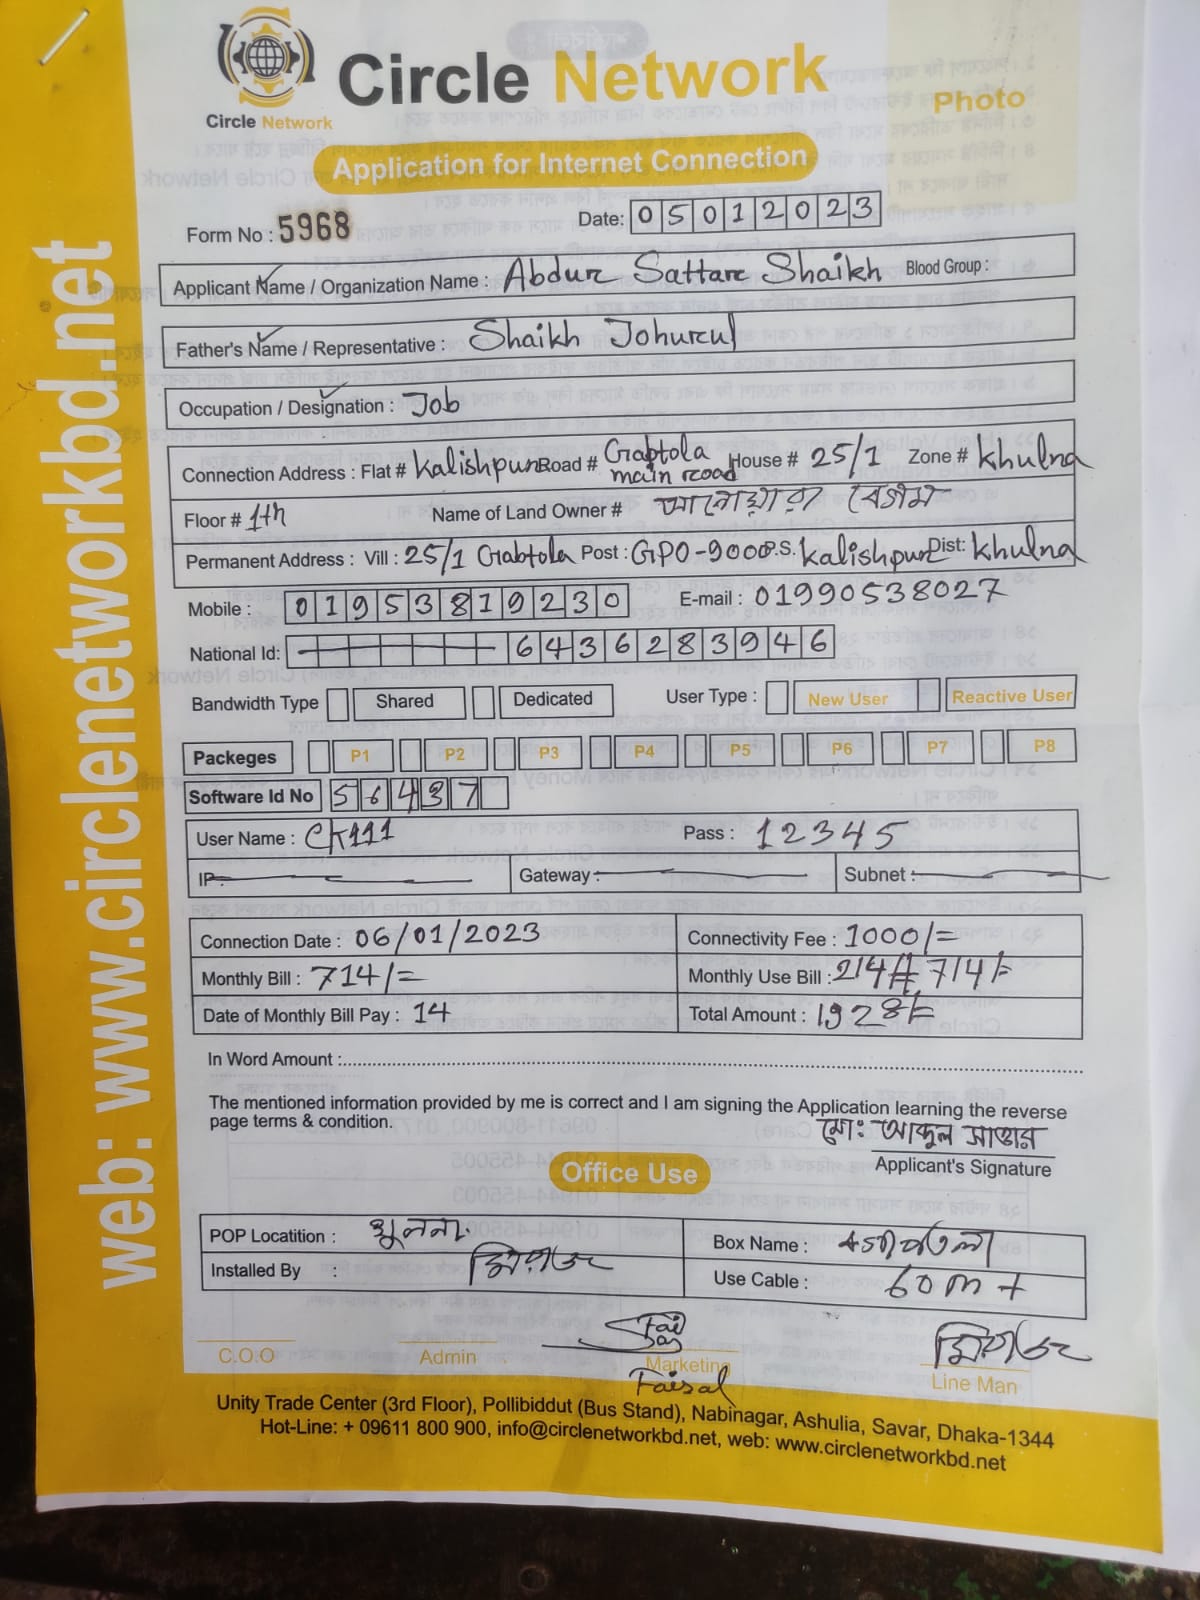 Circle Network
Circle Network
Photo
Application for Internet Connection
Form No : 5968
Date: 05012023
Applicant Name / Organization Name : Abdur Sattar Shaikh Blood Group :
Father's Name / Representative : Shaikh Johurul
Occupation / Designation : Job
Connection Address : Flat # Kalishpur Road # Gabtola main road House # 25/1 Zone # Khulna
Floor # 1th Name of Land Owner # আনোয়ারা বেগম
Permanent Address : Vill : 25/1 Gabtola Post : GPO-9000 P.S. Kalishpur Dist: Khulna
Mobile : 01953819230 E-mail : 01990538027
National Id: 6436283946
Bandwidth Type Shared Dedicated User Type : New User Reactive User
Packeges P1 P2 P3 P4 P5 P6 P7 P8
Software Id No 56437
User Name : CK111 Pass : 12345
IP Gateway : Subnet :
Connection Date : 06/01/2023 Connectivity Fee : 1000/=
Monthly Bill : 714/= Monthly Use Bill : 214 714/=
Date of Monthly Bill Pay : 14 Total Amount : 1928/=
In Word Amount :
The mentioned information provided by me is correct and I am signing the Application learning the reverse
page terms & condition.
মো: আব্দুল সাত্তার
Applicant's Signature
Office Use
POP Locatition : খুলনা Box Name :
Installed By : মিরাজ Use Cable : 60m
Faisal
C.O.O Admin Marketing Line Man
Faisal
Unity Trade Center (3rd Floor), Pollibiddut (Bus Stand), Nabinagar, Ashulia, Savar, Dhaka-1344
Hot-Line: + 09611 800 900, info@circlenetworkbd.net, web: www.circlenetworkbd.net
web: www.circlenetworkbd.net